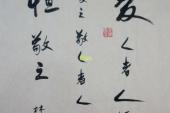 爱人者人
之敬人者人
恒敬之 林